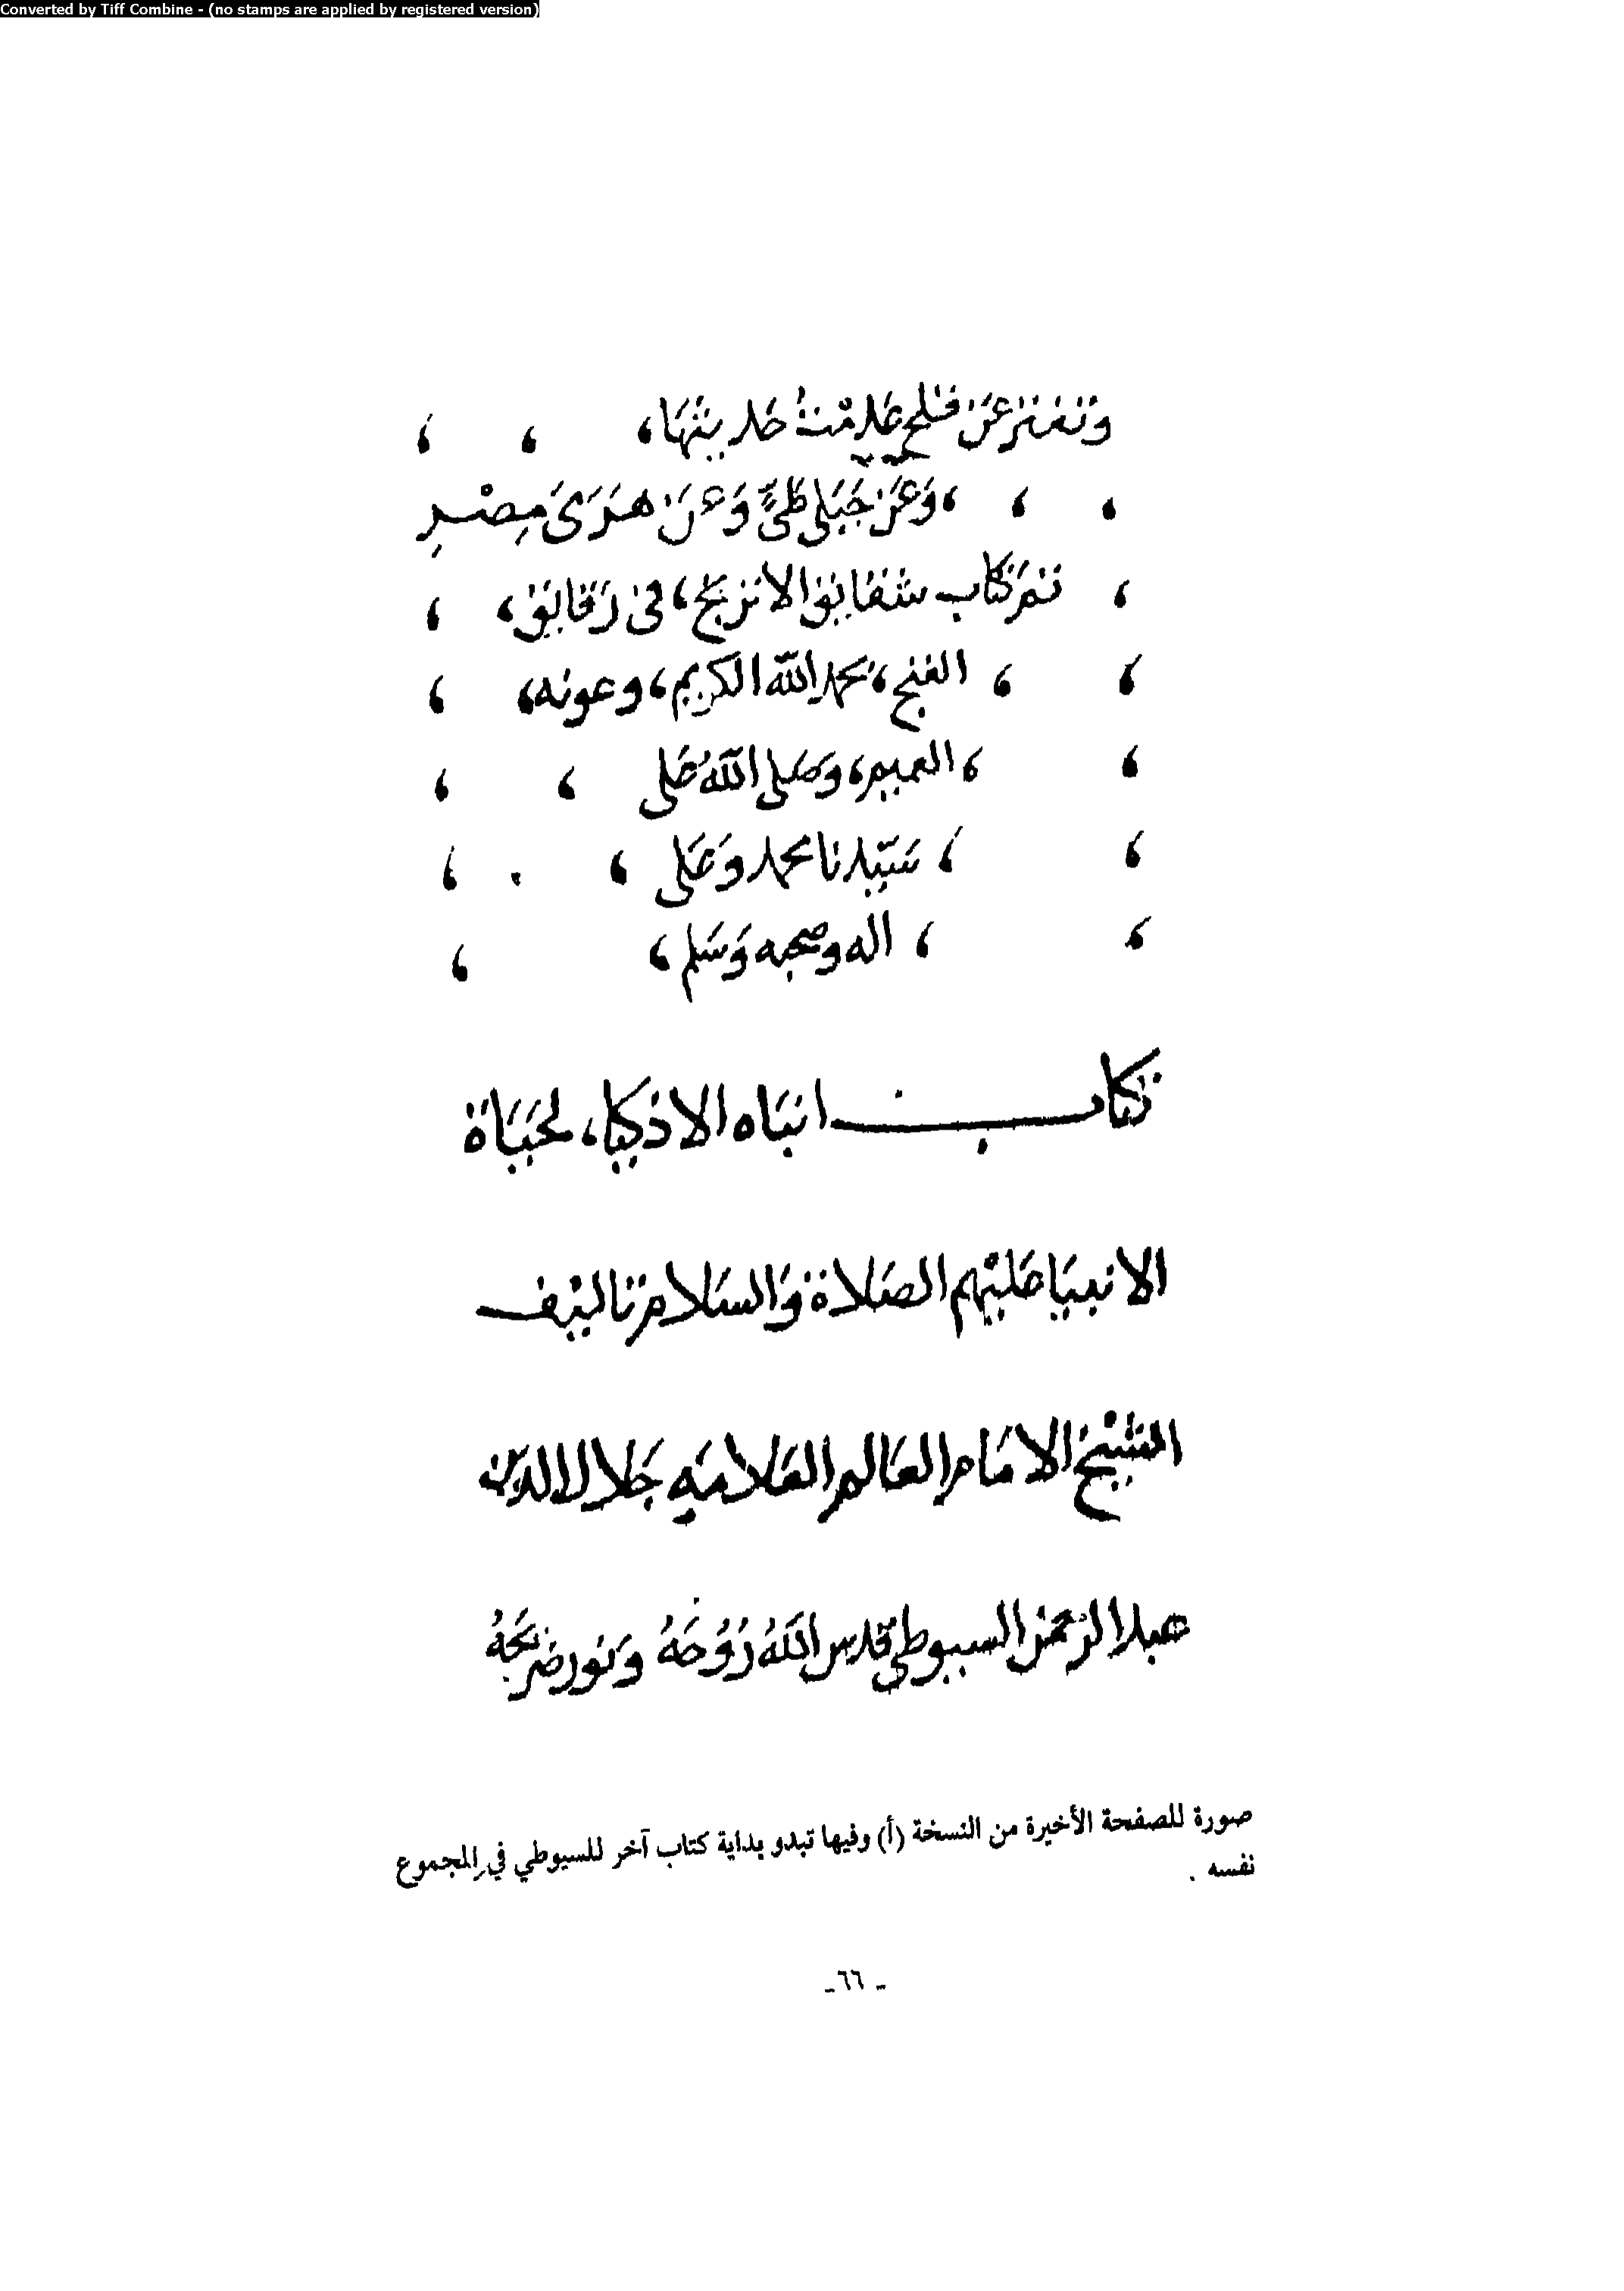 Converted by Tiff Combine - (no stamps are applied by registered version)
وَتَفتر عَن فلج عَدِمْتُ حَديثهَا،
، وَعَن جَبَلى طَىٍّ وَعن هَرَمَىَ مِصْرِ
، تم كتاب شقايق الاترنج، فى رَقايق،
، الغنج، بحمد الله الكريم، وعونه،
، العميم، وصَلى اللهُ عَلى
، سَيّدنا محمد وَعَلى
، اله وصحبه وَسَلم،
كتاب انبَاه الاذكيا، لحَيَاة
الانبيَا عَليْهم الصَلاة وَالسَلام تاليْف
الشيْخ الامَام العَالم العَلامَه جَلال الدين
عبد الرَحمن السيوطى قدس اللهُ رُوْحَهُ وَنور ضَريحَهُ
صورة للصفحة الأخيرة من النسخة (أ) وفيها تبدو بداية كتاب آخر للسيوطي في المجموع
نفسه .
- ٦٦ -